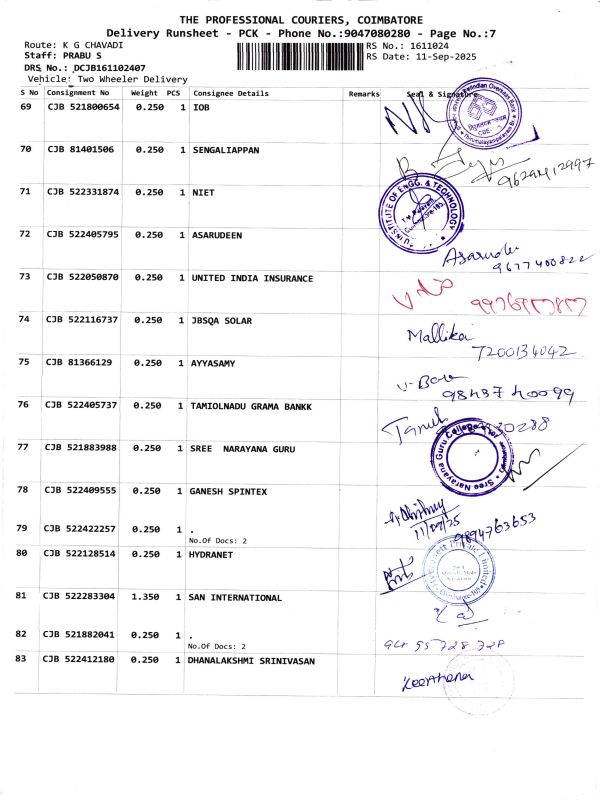 THE PROFESSIONAL COURIERS, COIMBATORE
Delivery Runsheet - PCK - Phone No.:9047080280 - Page No.:7
Route: K G CHAVADI
RS No.: 1611024
Staff: PRABU S
RS Date: 11-Sep-2025
DRS No.: DCJB161102407
Vehicle: Two Wheeler Delivery
S No Consignment No Weight PCS Consignee Details Remarks Seal & Signature
69 CJB 521800654 0.250 1 IOB
70 CJB 81401506 0.250 1 SENGALIAPPAN
9629412997
71 CJB 522331874 0.250 1 NIET
INSTITUTE OF ENGG. & TECHNOLOGY
72 CJB 522405795 0.250 1 ASARUDEEN
Asarudee
9677400822
73 CJB 522050870 0.250 1 UNITED INDIA INSURANCE
74 CJB 522116737 0.250 1 JBSQA SOLAR
Mallika
7200134042
75 CJB 81366129 0.250 1 AYYASAMY
76 CJB 522405737 0.250 1 TAMIOLNADU GRAMA BANKK
77 CJB 521883988 0.250 1 SREE NARAYANA GURU
Sree Narayana Guru College
78 CJB 522409555 0.250 1 GANESH SPINTEX
11/09/25
9894763653
79 CJB 522422257 0.250 1 .
No.Of Docs: 2
80 CJB 522128514 0.250 1 HYDRANET
81 CJB 522283304 1.350 1 SAN INTERNATIONAL
82 CJB 521882041 0.250 1 .
No.Of Docs: 2
83 CJB 522412180 0.250 1 DHANALAKSHMI SRINIVASAN
Keerthana